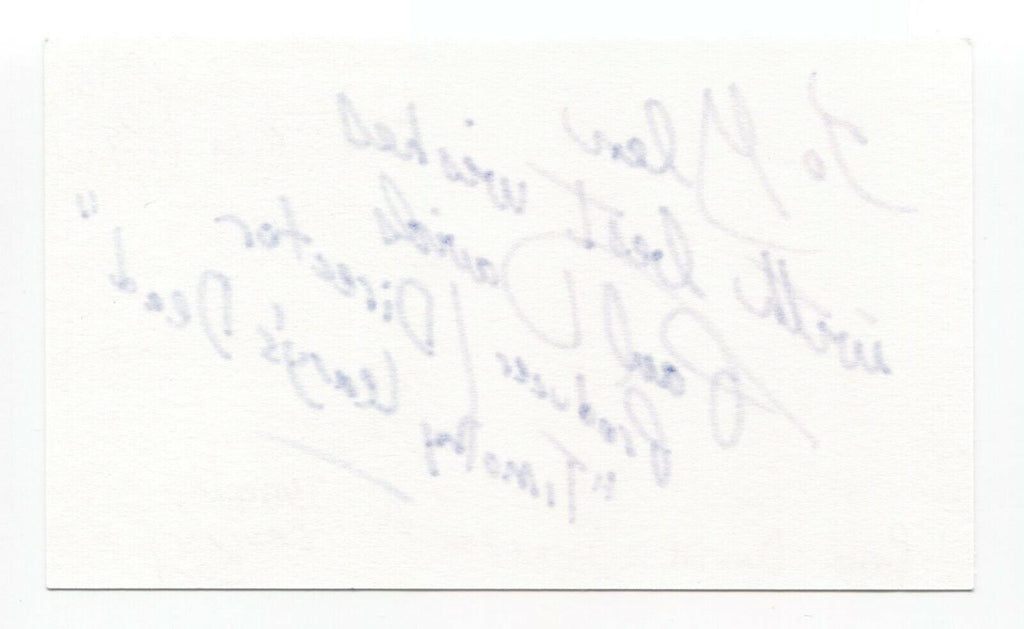 To Glen
with best wishes
Paul Davids
Producer / Director
"Timothy Leary's Dead"